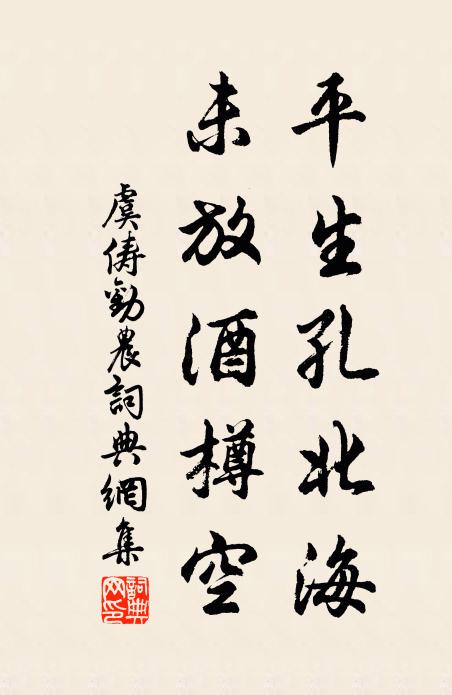 平生孔北海
未放酒樽空
虞儔勸農詞典網集
詞典网印